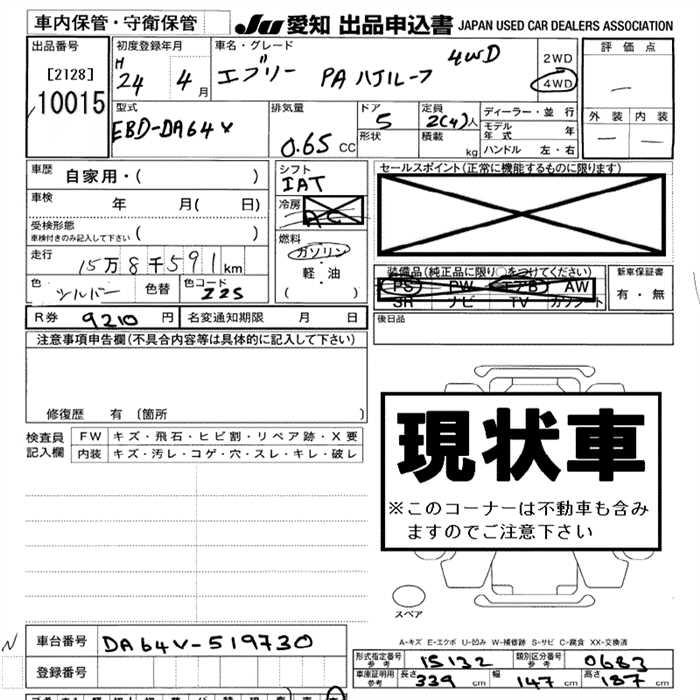 車内保管・守衛保管
JU 愛知 出品申込書 JAPAN USED CAR DEALERS ASSOCIATION
出品番号
[2128]
10015
初度登録年月
H 24 4 月
車名・グレード
エブリー PA ハイルーフ 4WD
2WD
4WD
評価点
—
外装 内装
— —
型式
EBD-DA64V
排気量
0.65 CC
ドア
5
形状
定員
2(4)人
積載
kg
ディーラー・並行
モデル年式 年
ハンドル 左・右
車歴 自家用・( )
車検 年 月( 日)
受検形態
車検付きのみ記入して下さい ( )
走行 15万8千591km
色 シルバー 色替 色コード Z2S
シフト
IAT
冷房
AC
燃料
ガソリン
・
軽・油
( )
セールスポイント(正常に機能するものに限ります)
装備品(純正品に限り○をつけてください)
PS PW エアB AW
SR ナビ TV カワシート
新車保証書
有・無
R券 9210 円 名変通知期限 月 日
後日品
注意事項申告欄(不具合内容等は具体的に記入して下さい)
修復歴 有 〔箇所 〕
検査員記入欄
FW キズ・飛石・ヒビ割・リペア跡・X要
内装 キズ・汚レ・コゲ・穴・スレ・キレ・破レ
現状車
※このコーナーは不動車も含み
ますのでご注意下さい
スペア
A-キズ E-エクボ U-凹み W-補修跡 S-サビ C-腐食 XX-交換済
N
車台番号 DA64V-519730
登録番号
形式指定番号 参考 15132 類別区分番号 参考 0683
車庫証明用 参考 長さ 339 cm 幅 147 cm 高さ 187 cm